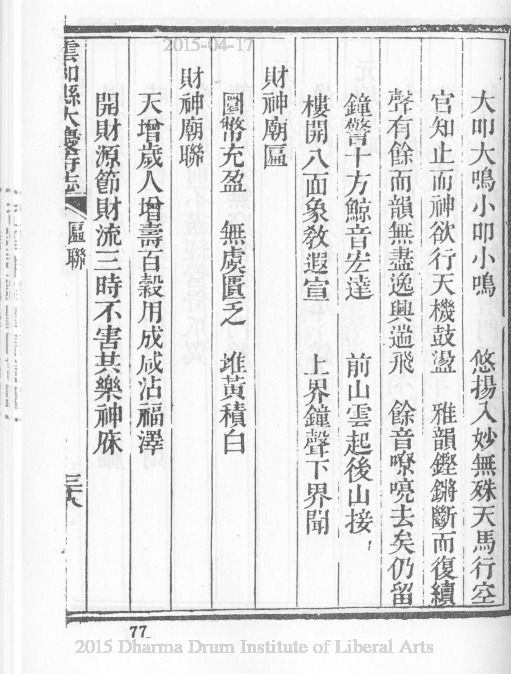 2015-04-17
大叩大鳴小叩小鳴　悠揚入妙無殊天馬行空
官知止而神欲行天機鼓盪　雅韻鏗鏘斷而復續
聲有餘而韻無盡逸興遄飛　餘音嘹喨去矣仍留
鐘警十方鯨音宏達　前山雲起後山接
樓開八面象教遐宣　上界鐘聲下界聞
財神廟匾
圜幣充盈　無虞匱乏　堆黃積白
財神廟聯
天增歲人增壽百穀用成咸沾福澤
開財源節財流三時不害共樂神庥
雲和縣大慶寺志
匾聯
三八
77
2015 Dharma Drum Institute of Liberal Arts